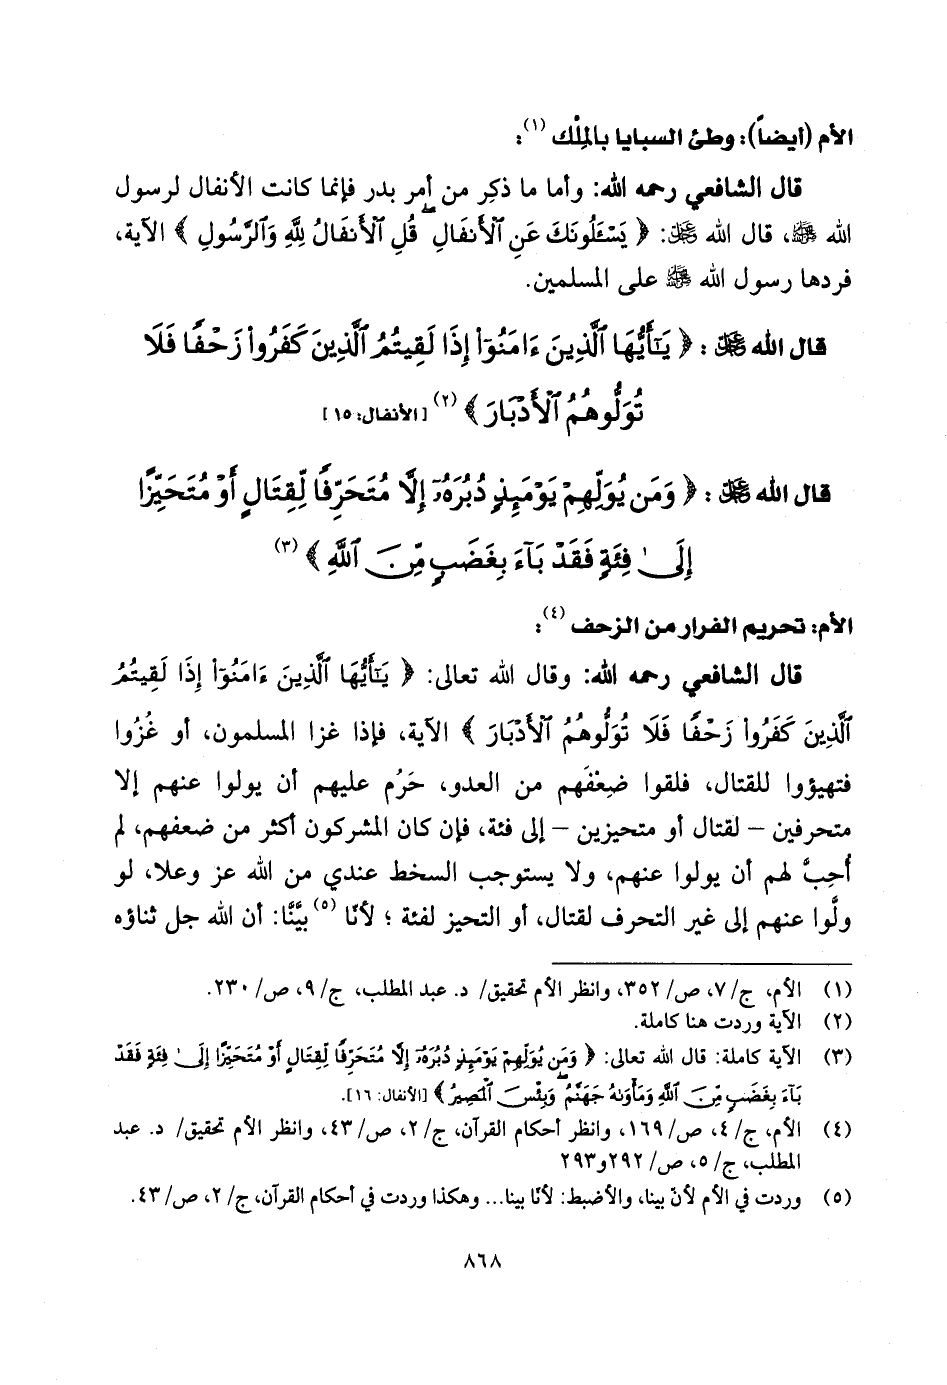 الأم (أيضاً): وطئ السبايا بالمِلْك (١):
قال الشافعي رحمه الله: وأما ما ذكِر من أمر بدر فإنما كانت الأنفال لرسول
الله ﷺ، قال الله ﷻ: ﴿ يَسْـَٔلُونَكَ عَنِ ٱلْأَنفَالِ ۖ قُلِ ٱلْأَنفَالُ لِلَّهِ وَٱلرَّسُولِ ﴾ الآية،
فردها رسول الله ﷺ على المسلمين.
قال الله ﷻ : ﴿ يَـٰٓأَيُّهَا ٱلَّذِينَ ءَامَنُوٓا۟ إِذَا لَقِيتُمُ ٱلَّذِينَ كَفَرُوا۟ زَحْفًا فَلَا
تُوَلُّوهُمُ ٱلْأَدْبَارَ ﴾ (٢) [الأنفال: ١٥]
قال الله ﷻ : ﴿ وَمَن يُوَلِّهِمْ يَوْمَئِذٍ دُبُرَهُۥٓ إِلَّا مُتَحَرِّفًا لِّقِتَالٍ أَوْ مُتَحَيِّزًا
إِلَىٰ فِئَةٍ فَقَدْ بَآءَ بِغَضَبٍ مِّنَ ٱللَّهِ ﴾ (٣)
الأم: تحريم الفرار من الزحف (٤):
قال الشافعي رحمه الله: وقال الله تعالى: ﴿ يَـٰٓأَيُّهَا ٱلَّذِينَ ءَامَنُوٓا۟ إِذَا لَقِيتُمُ
ٱلَّذِينَ كَفَرُوا۟ زَحْفًا فَلَا تُوَلُّوهُمُ ٱلْأَدْبَارَ ﴾ الآية، فإذا غزا المسلمون، أو غُزُوا
فتهيؤوا للقتال، فلقوا ضِعْفَهم من العدو، حَرُم عليهم أن يولوا عنهم إلا
متحرفين – لقتال أو متحيزين – إلى فئة، فإن كان المشركون أكثر من ضعفهم، لم
أُحِبَّ لهم أن يولوا عنهم، ولا يستوجب السخط عندي من الله عز وعلا، لو
ولَّوا عنهم إلى غير التحرف لقتال، أو التحيز لفئة ؛ لأنّا (٥) بيَّنَّا: أن الله جل ثناؤه
(١) الأم، ج/ ٧، ص/ ٣٥٢، وانظر الأم تحقيق/ د. عبد المطلب، ج/ ٩، ص/ ٢٣٠.
(٢) الآية وردت هنا كاملة.
(٣) الآية كاملة: قال الله تعالى: ﴿ وَمَن يُوَلِّهِمْ يَوْمَئِذٍ دُبُرَهُۥٓ إِلَّا مُتَحَرِّفًا لِّقِتَالٍ أَوْ مُتَحَيِّزًا إِلَىٰ فِئَةٍ فَقَدْ
بَآءَ بِغَضَبٍ مِّنَ ٱللَّهِ وَمَأْوَىٰهُ جَهَنَّمُ ۖ وَبِئْسَ ٱلْمَصِيرُ ﴾ [الأنفال: ١٦].
(٤) الأم، ج/ ٤، ص/ ١٦٩، وانظر أحكام القرآن، ج/ ٢، ص/ ٤٣، وانظر الأم تحقيق/ د. عبد
المطلب، ج/ ٥، ص/ ٢٩٢و٢٩٣
(٥) وردت في الأم لأنّ بينا، والأضبط: لأنّا بينا... وهكذا وردت في أحكام القرآن، ج/ ٢، ص/ ٤٣.
٨٦٨